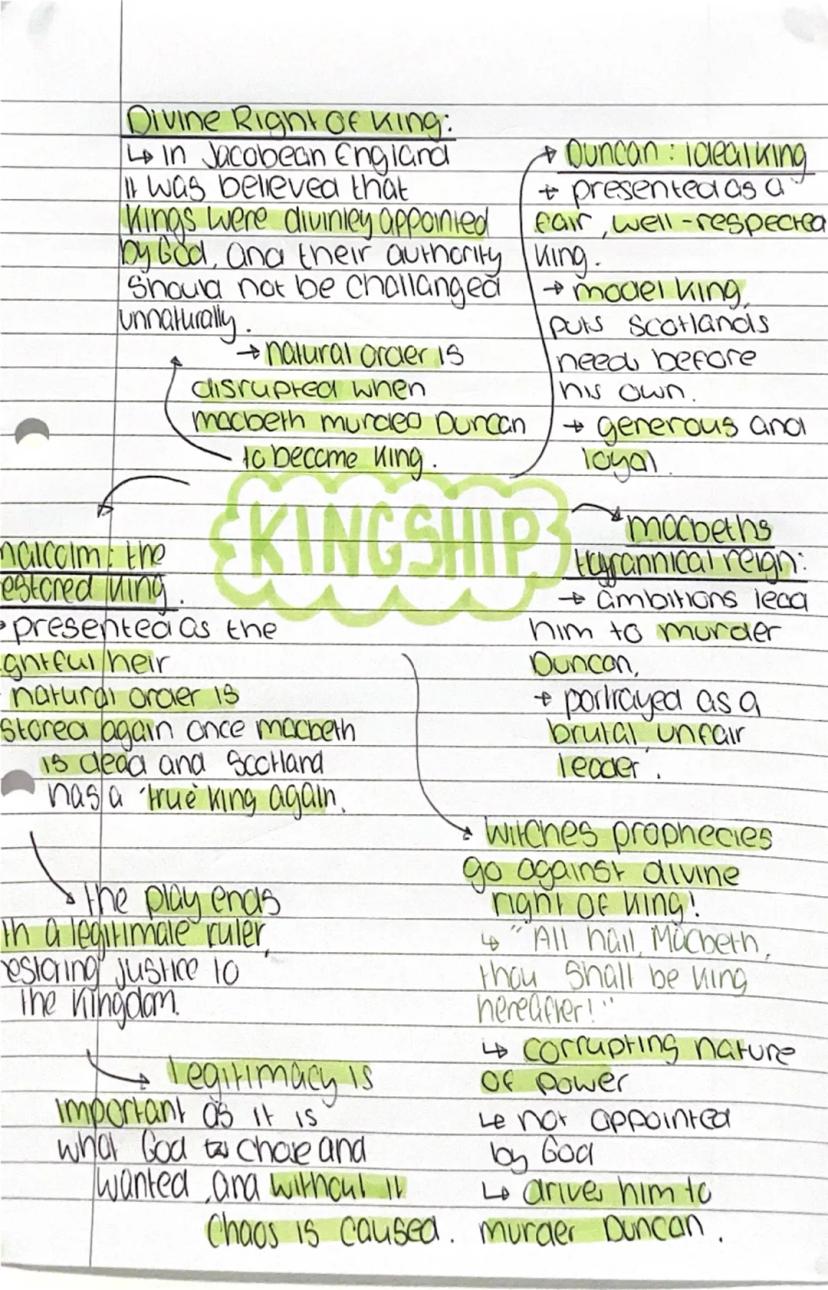 Divine Right Of King:
↳ in Jacobean England
it was believed that
kings were divinley appointed
by God, and their authority
should not be challanged
unnaturally.
→ natural order is
disrupted when
macbeth murded Duncan
to become king.
Duncan: ideal king
→ presented as a
fair, well-respected
king.
→ model king,
puts Scotlands
need before
his own.
→ generous and
loyal.
KINGSHIP
malcolm: the
estored king.
presented as the
ghtful heir
natural order is
stored again once macbeth
is dead and Scotland
has a 'true' king again.
→ the play ends
ith a legitimate ruler,
restoring justice to
the kingdom.
→ legitimacy is
important as it is
what God chose and
wanted, and without it
chaos is caused.
macbeths
tyrannical reign:
→ ambitions lead
him to murder
Duncan,
→ portrayed as a
brutal unfair
leader.
→ witches prophecies
go against divine
right of king!
↳ "All hail, Macbeth,
thou shall be king
hereafter!"
↳ corrupting nature
of power
↳ not appointed
by God
↳ drives him to
murder Duncan.